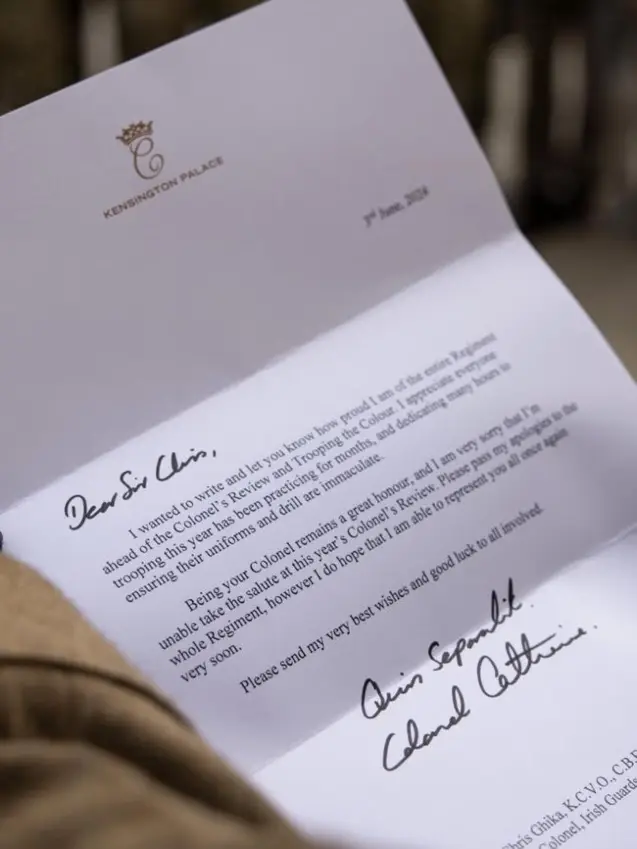 C
KENSINGTON PALACE
3rd June, 2024
Dear Sir Chris,
I wanted to write and let you know how proud I am of the entire Regiment
ahead of the Colonel's Review and Trooping the Colour. I appreciate everyone
trooping this year has been practicing for months, and dedicating many hours to
ensuring their uniforms and drill are immaculate.
Being your Colonel remains a great honour, and I am very sorry that I'm
unable take the salute at this year's Colonel's Review. Please pass my apologies to the
whole Regiment, however I do hope that I am able to represent you all once again
very soon.
Please send my very best wishes and good luck to all involved.
Quis Separabit.
Colonel Catherine.
Chris Ghika, K.C.V.O., C.B.E
Colonel, Irish Guards